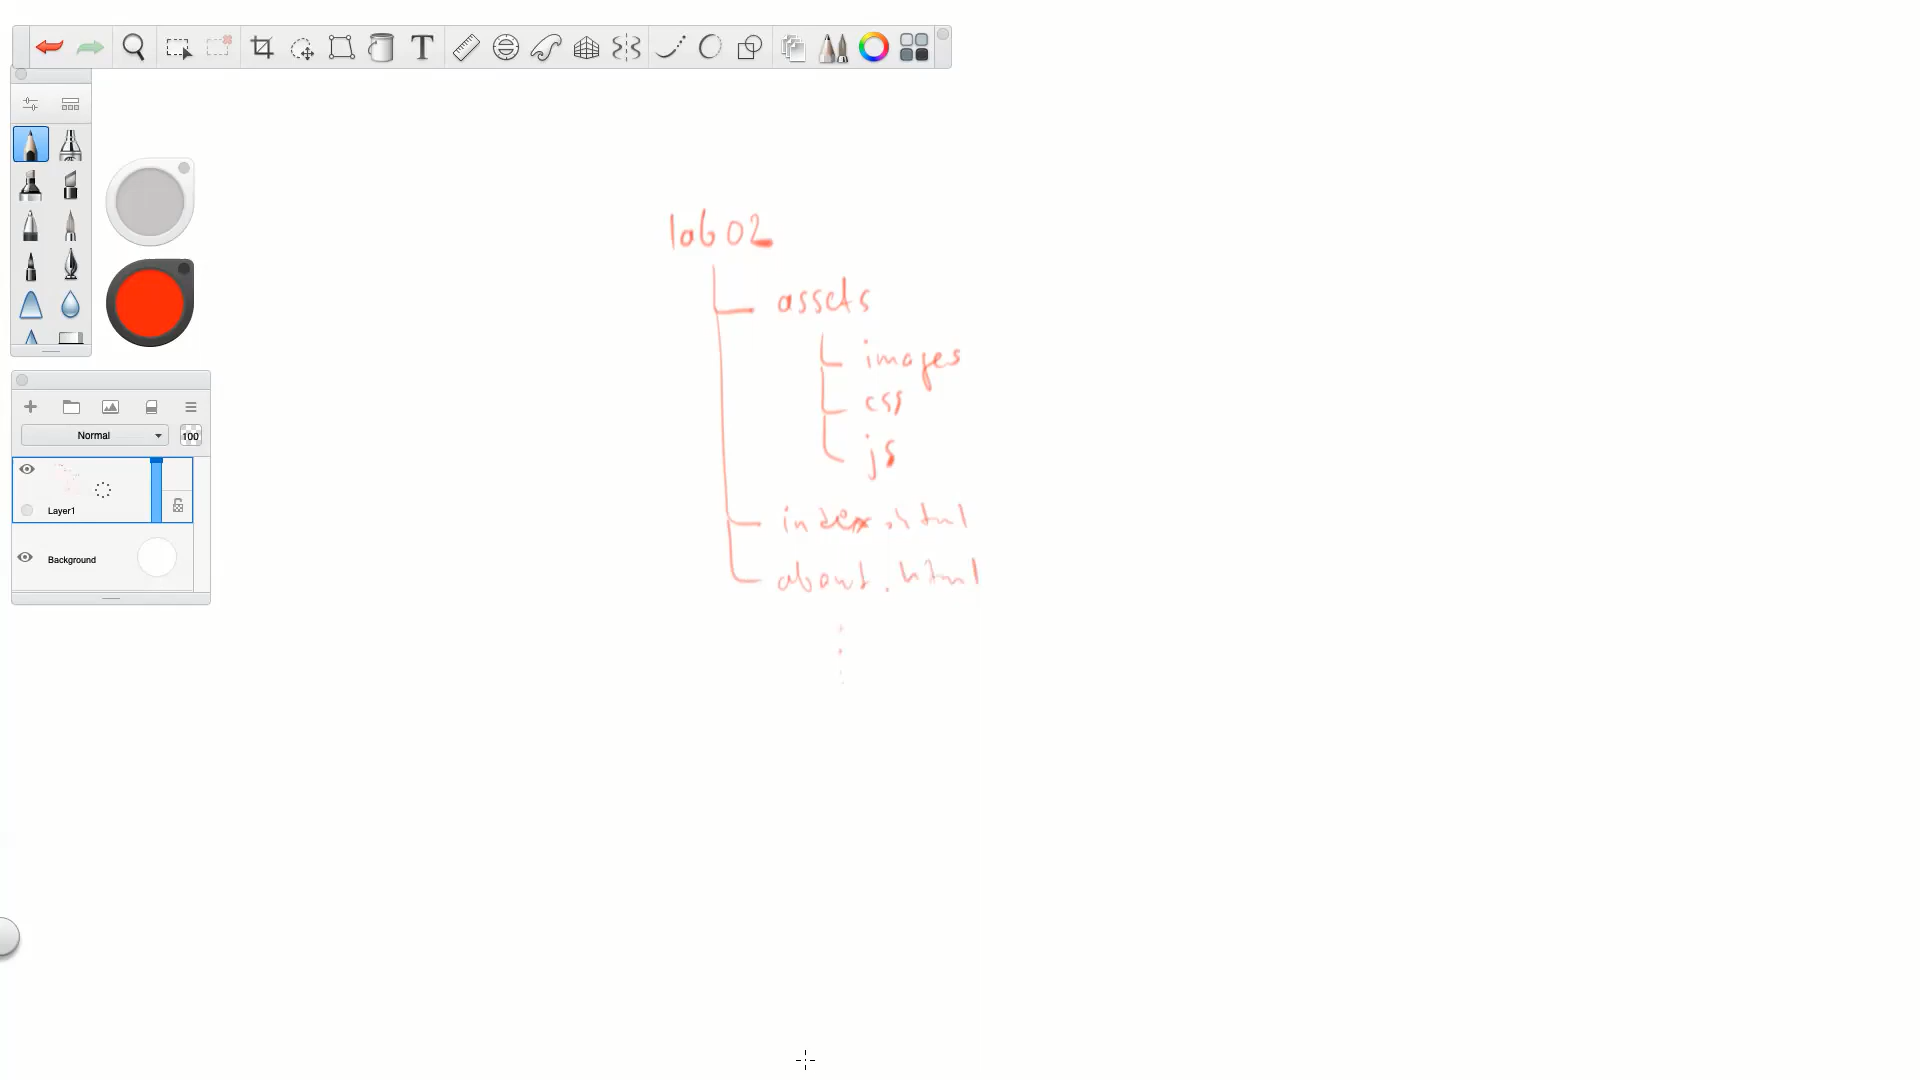 T
Normal
100
Layer1
Background
lab 02
assets
images
css
js
index.html
about.html